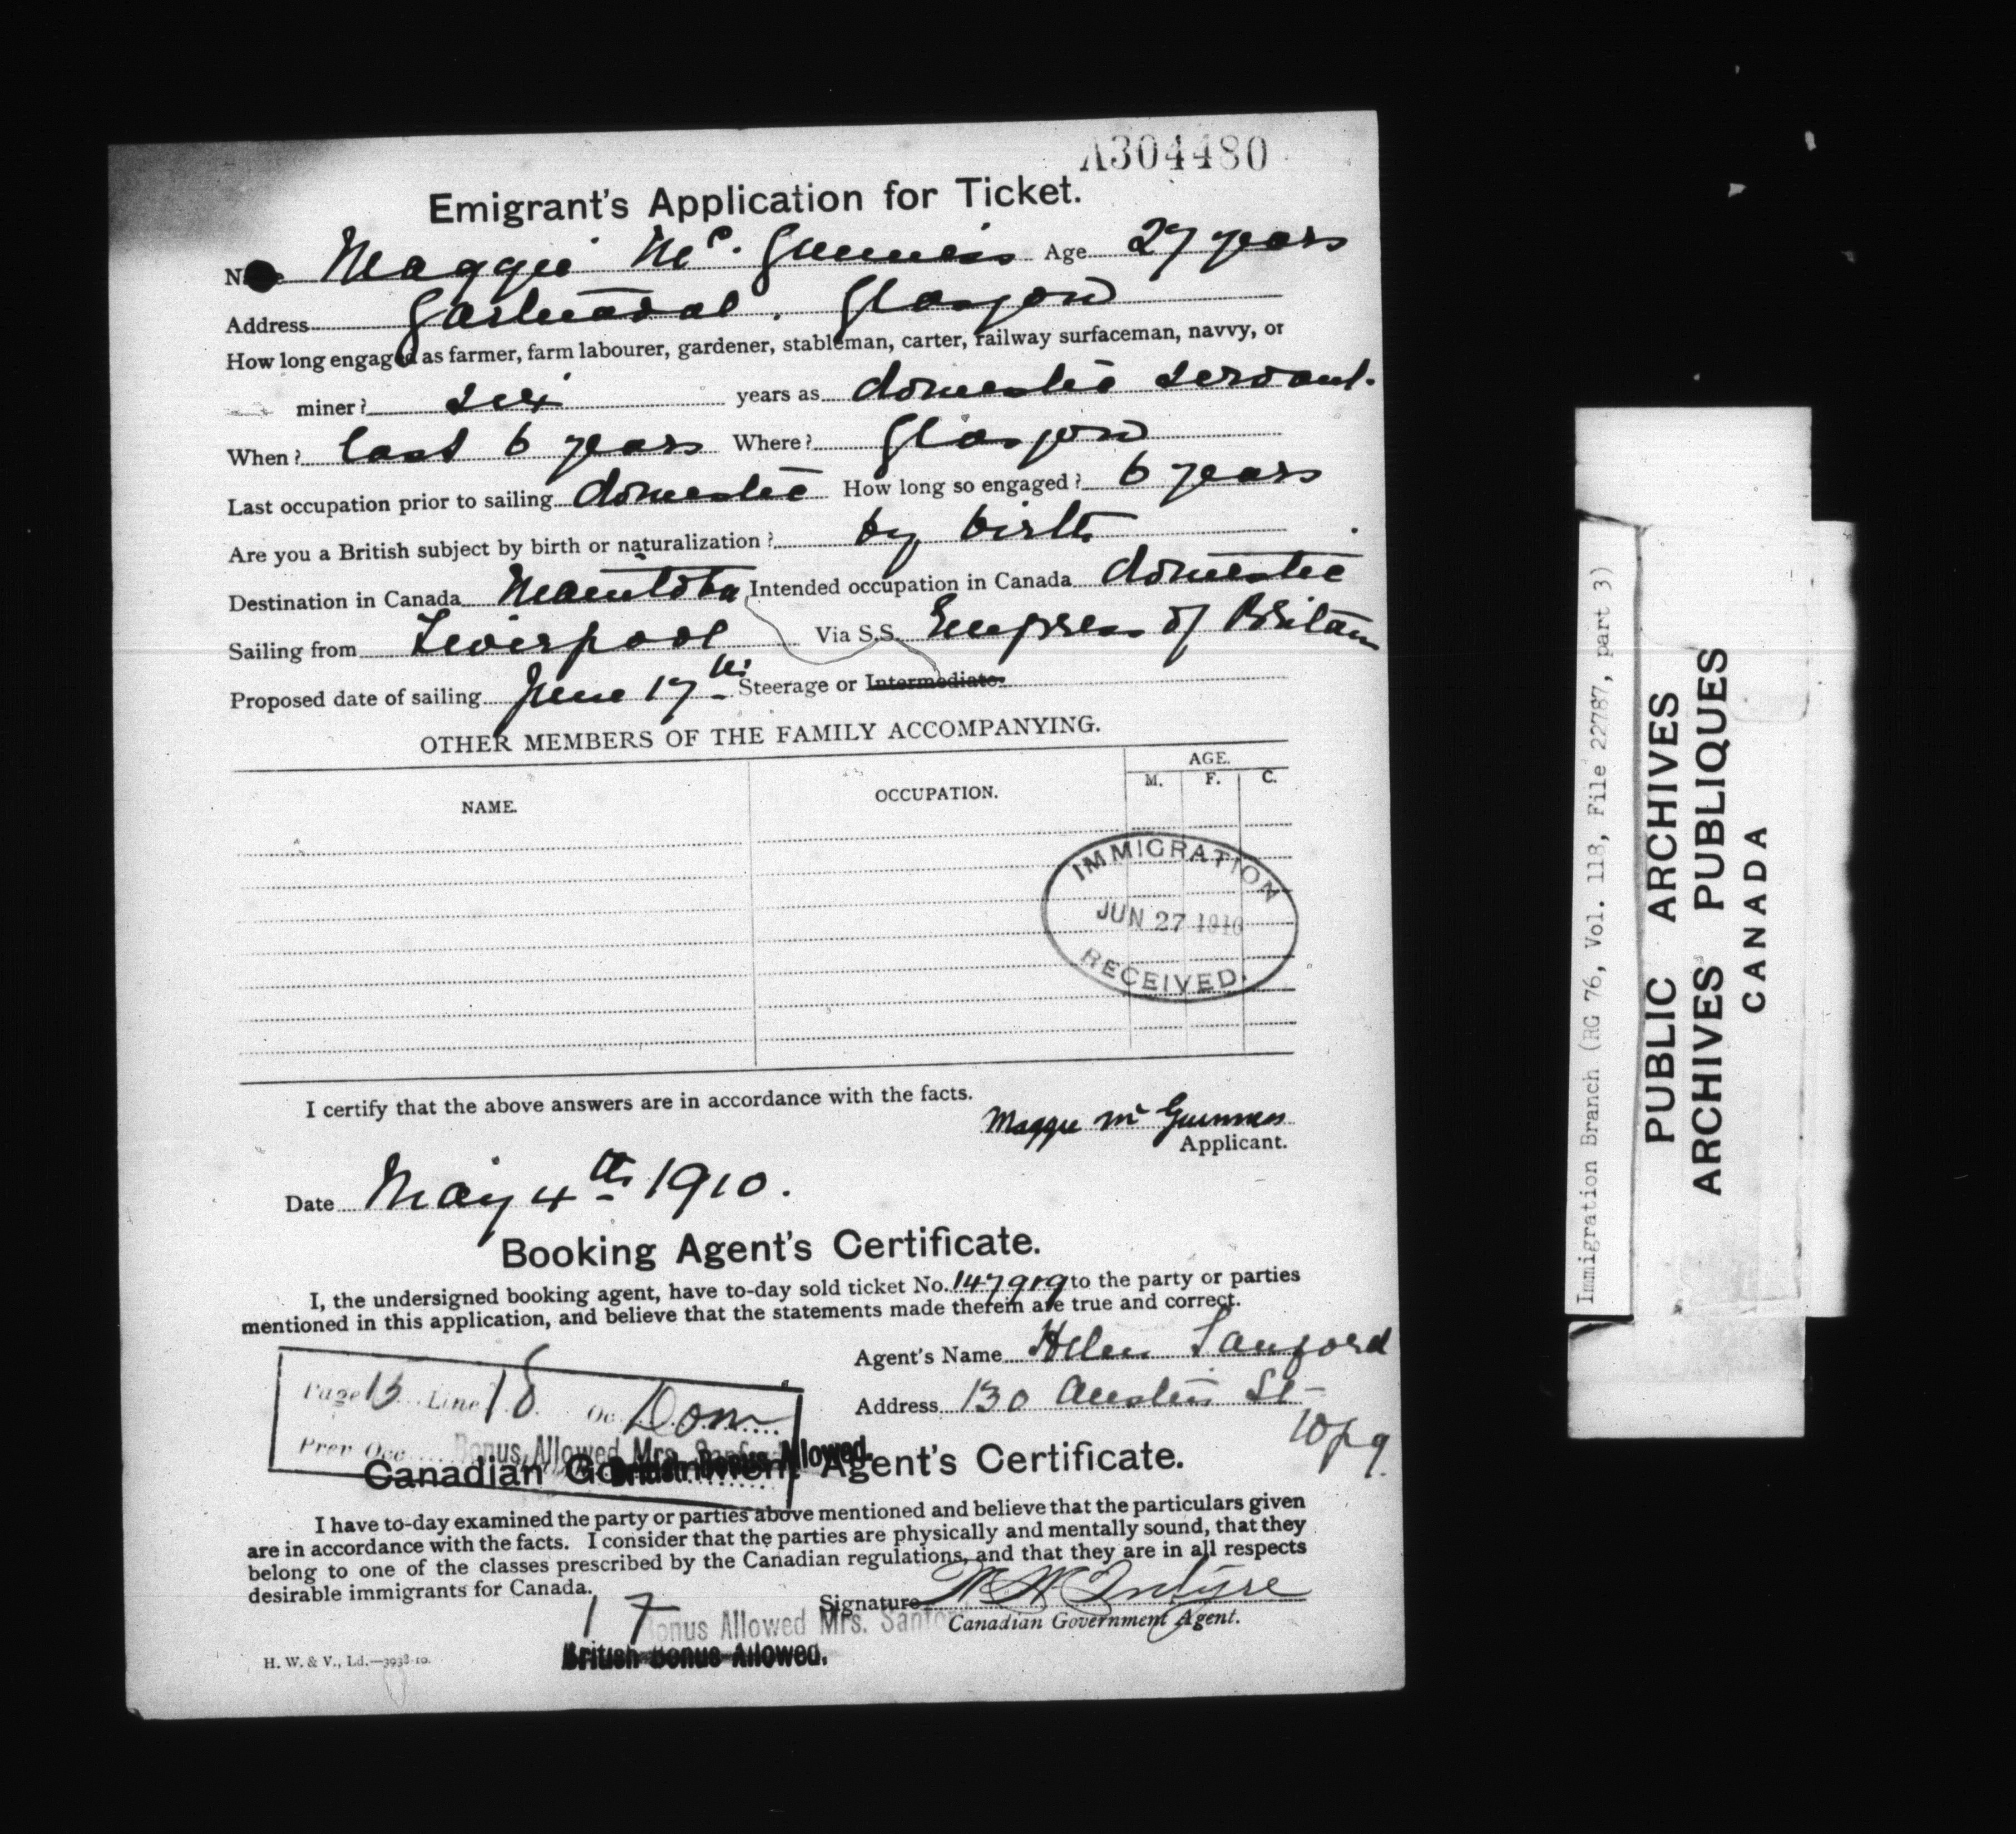 A304480
Emigrant's Application for Ticket.
Maggie Mc. Guinness Age 27 years
Address Gartnavel. Glasgow
How long engaged as farmer, farm labourer, gardener, stableman, carter, railway surfaceman, navvy, or
miner? six years as domestic servant.
When? last 6 years Where? Glasgow
Last occupation prior to sailing domestic How long so engaged? 6 years
Are you a British subject by birth or naturalization? by birth
Destination in Canada Manitoba Intended occupation in Canada domestic
Sailing from Liverpool Via S.S. Empress of Britain
Proposed date of sailing June 17th Steerage or Intermediate
OTHER MEMBERS OF THE FAMILY ACCOMPANYING.
NAME. OCCUPATION. AGE.
M. F. C.
IMMIGRATION
JUN 27 1910
RECEIVED.
I certify that the above answers are in accordance with the facts.
Maggie Mc Guinness
Applicant.
Date May 4th 1910.
Booking Agent's Certificate.
I, the undersigned booking agent, have to-day sold ticket No. 147919 to the party or parties
mentioned in this application, and believe that the statements made therein are true and correct.
Agent's Name Helen Sanford
Address 130 Austin St
Wpg
Page 13 Line 18 Oc. Dom
Prev Occ
Bonus Allowed Mrs. Sanford
British Bonus Allowed.
Canadian Government Agent's Certificate.
I have to-day examined the party or parties above mentioned and believe that the particulars given
are in accordance with the facts. I consider that the parties are physically and mentally sound, that they
belong to one of the classes prescribed by the Canadian regulations, and that they are in all respects
desirable immigrants for Canada.
17
Signature W W McIntyre
Canadian Government Agent.
Bonus Allowed Mrs. Sanford
British Bonus Allowed.
H. W. & V., Ld.—3938-10.
Immigration Branch (RG 76, Vol. 118, File 22787, part 3)
PUBLIC ARCHIVES
ARCHIVES PUBLIQUES
CANADA